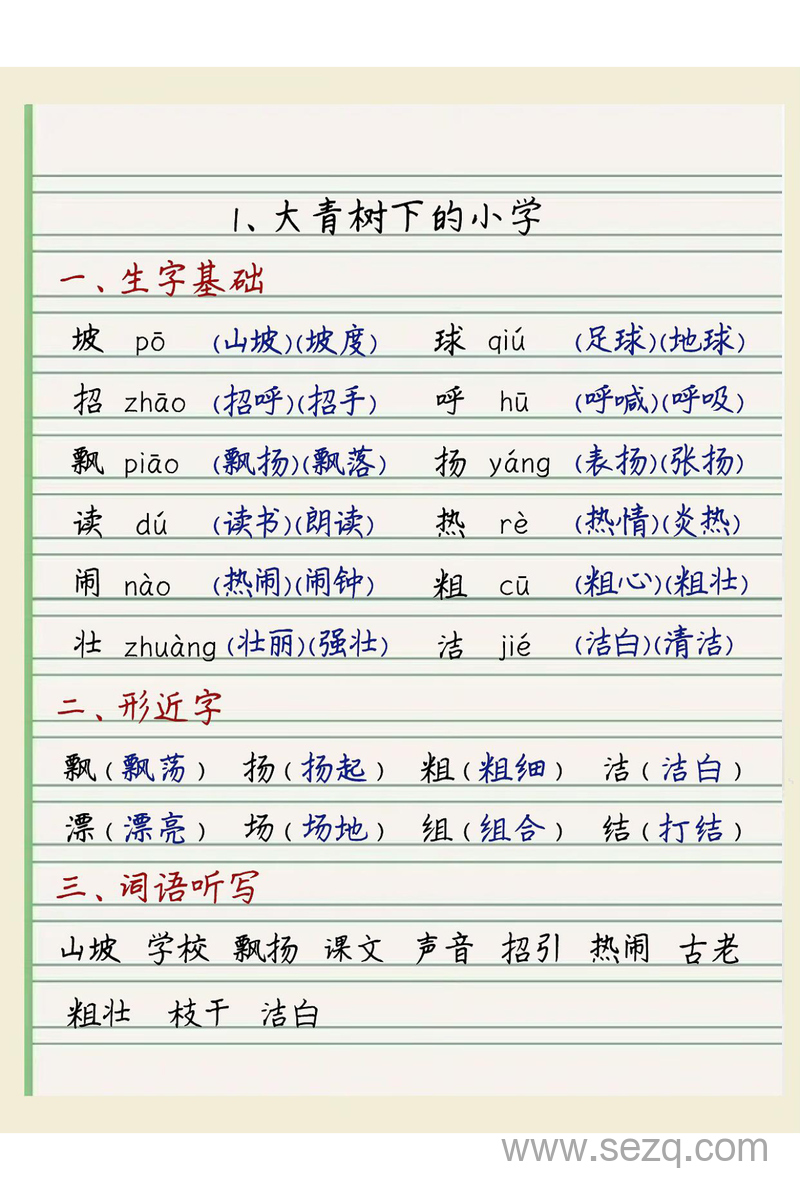 1、大青树下的小学
一、生字基础
坡 pō (山坡)(坡度) 球 qiú (足球)(地球)
招 zhāo (招呼)(招手) 呼 hū (呼喊)(呼吸)
飘 piāo (飘扬)(飘落) 扬 yáng (表扬)(张扬)
读 dú (读书)(朗读) 热 rè (热情)(炎热)
闹 nào (热闹)(闹钟) 粗 cū (粗心)(粗壮)
壮 zhuàng (壮丽)(强壮) 洁 jié (洁白)(清洁)
二、形近字
飘(飘荡) 扬(扬起) 粗(粗细) 洁(洁白)
漂(漂亮) 场(场地) 组(组合) 结(打结)
三、词语听写
山坡 学校 飘扬 课文 声音 招引 热闹 古老
粗壮 枝干 洁白
www.sezq.com